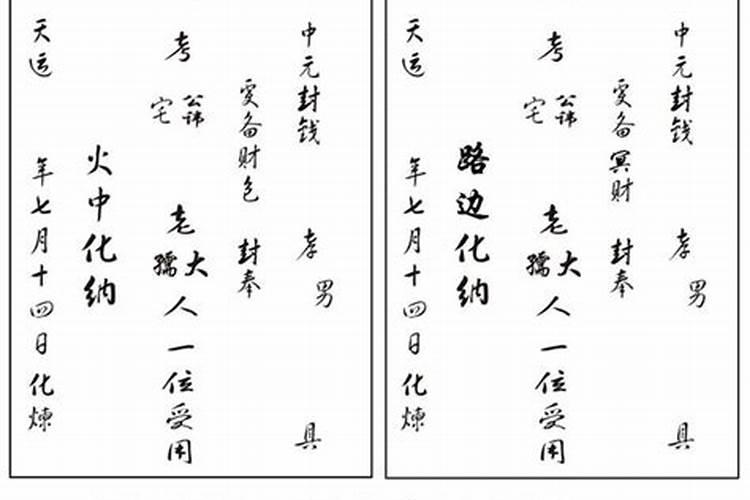 中元封钱 孝 男 具
爰备财包 封奉
考 公讳 宅 老 大 孺 人一位受用
火中化纳
天运 年七月十四日化煉
中元封钱 孝 男 具
爰备冥财 封奉
考 公讳 宅 老 大 孺 人一位受用
路边化纳
天运 年七月十四日化煉